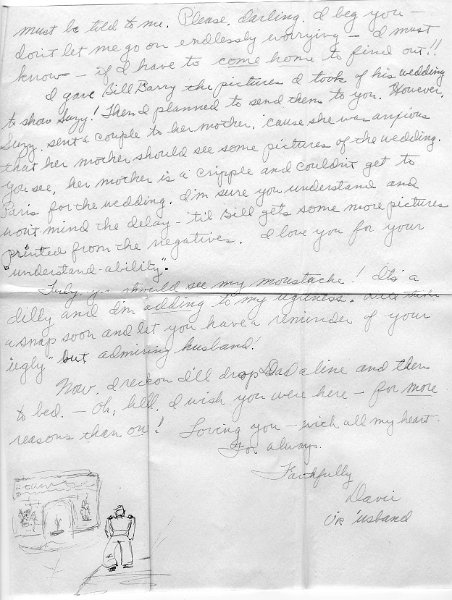 must be told to me. Please, darling. I beg you –
don't let me go on endlessly worrying – I must
know – if I have to come home to find out!!
I gave Bill Barry the pictures I took of his wedding
to show Suzy! Then I planned to send them to you. However,
Suzy sent a couple to her mother, 'cause she was anxious
that her mother should see some pictures of the wedding.
You see, her mother is a cripple and couldn't get to
Paris for the wedding. I'm sure you understand and
won't mind the delay – 'til Bill gets some more pictures
printed from the negatives. I love you for your
"understand-ability".
Judy, you should see my moustache! It's a
dilly and I'm adding to my ugliness. Will
a snap soon and let you have a reminder of your
"ugly" but admiring husband!
Now I reckon I'll drop Dad a line and then
to bed. – Oh, hell. I wish you were here – for more
reasons than on! Loving you – with all my heart
For always.
Faithfully
Davie
'usband